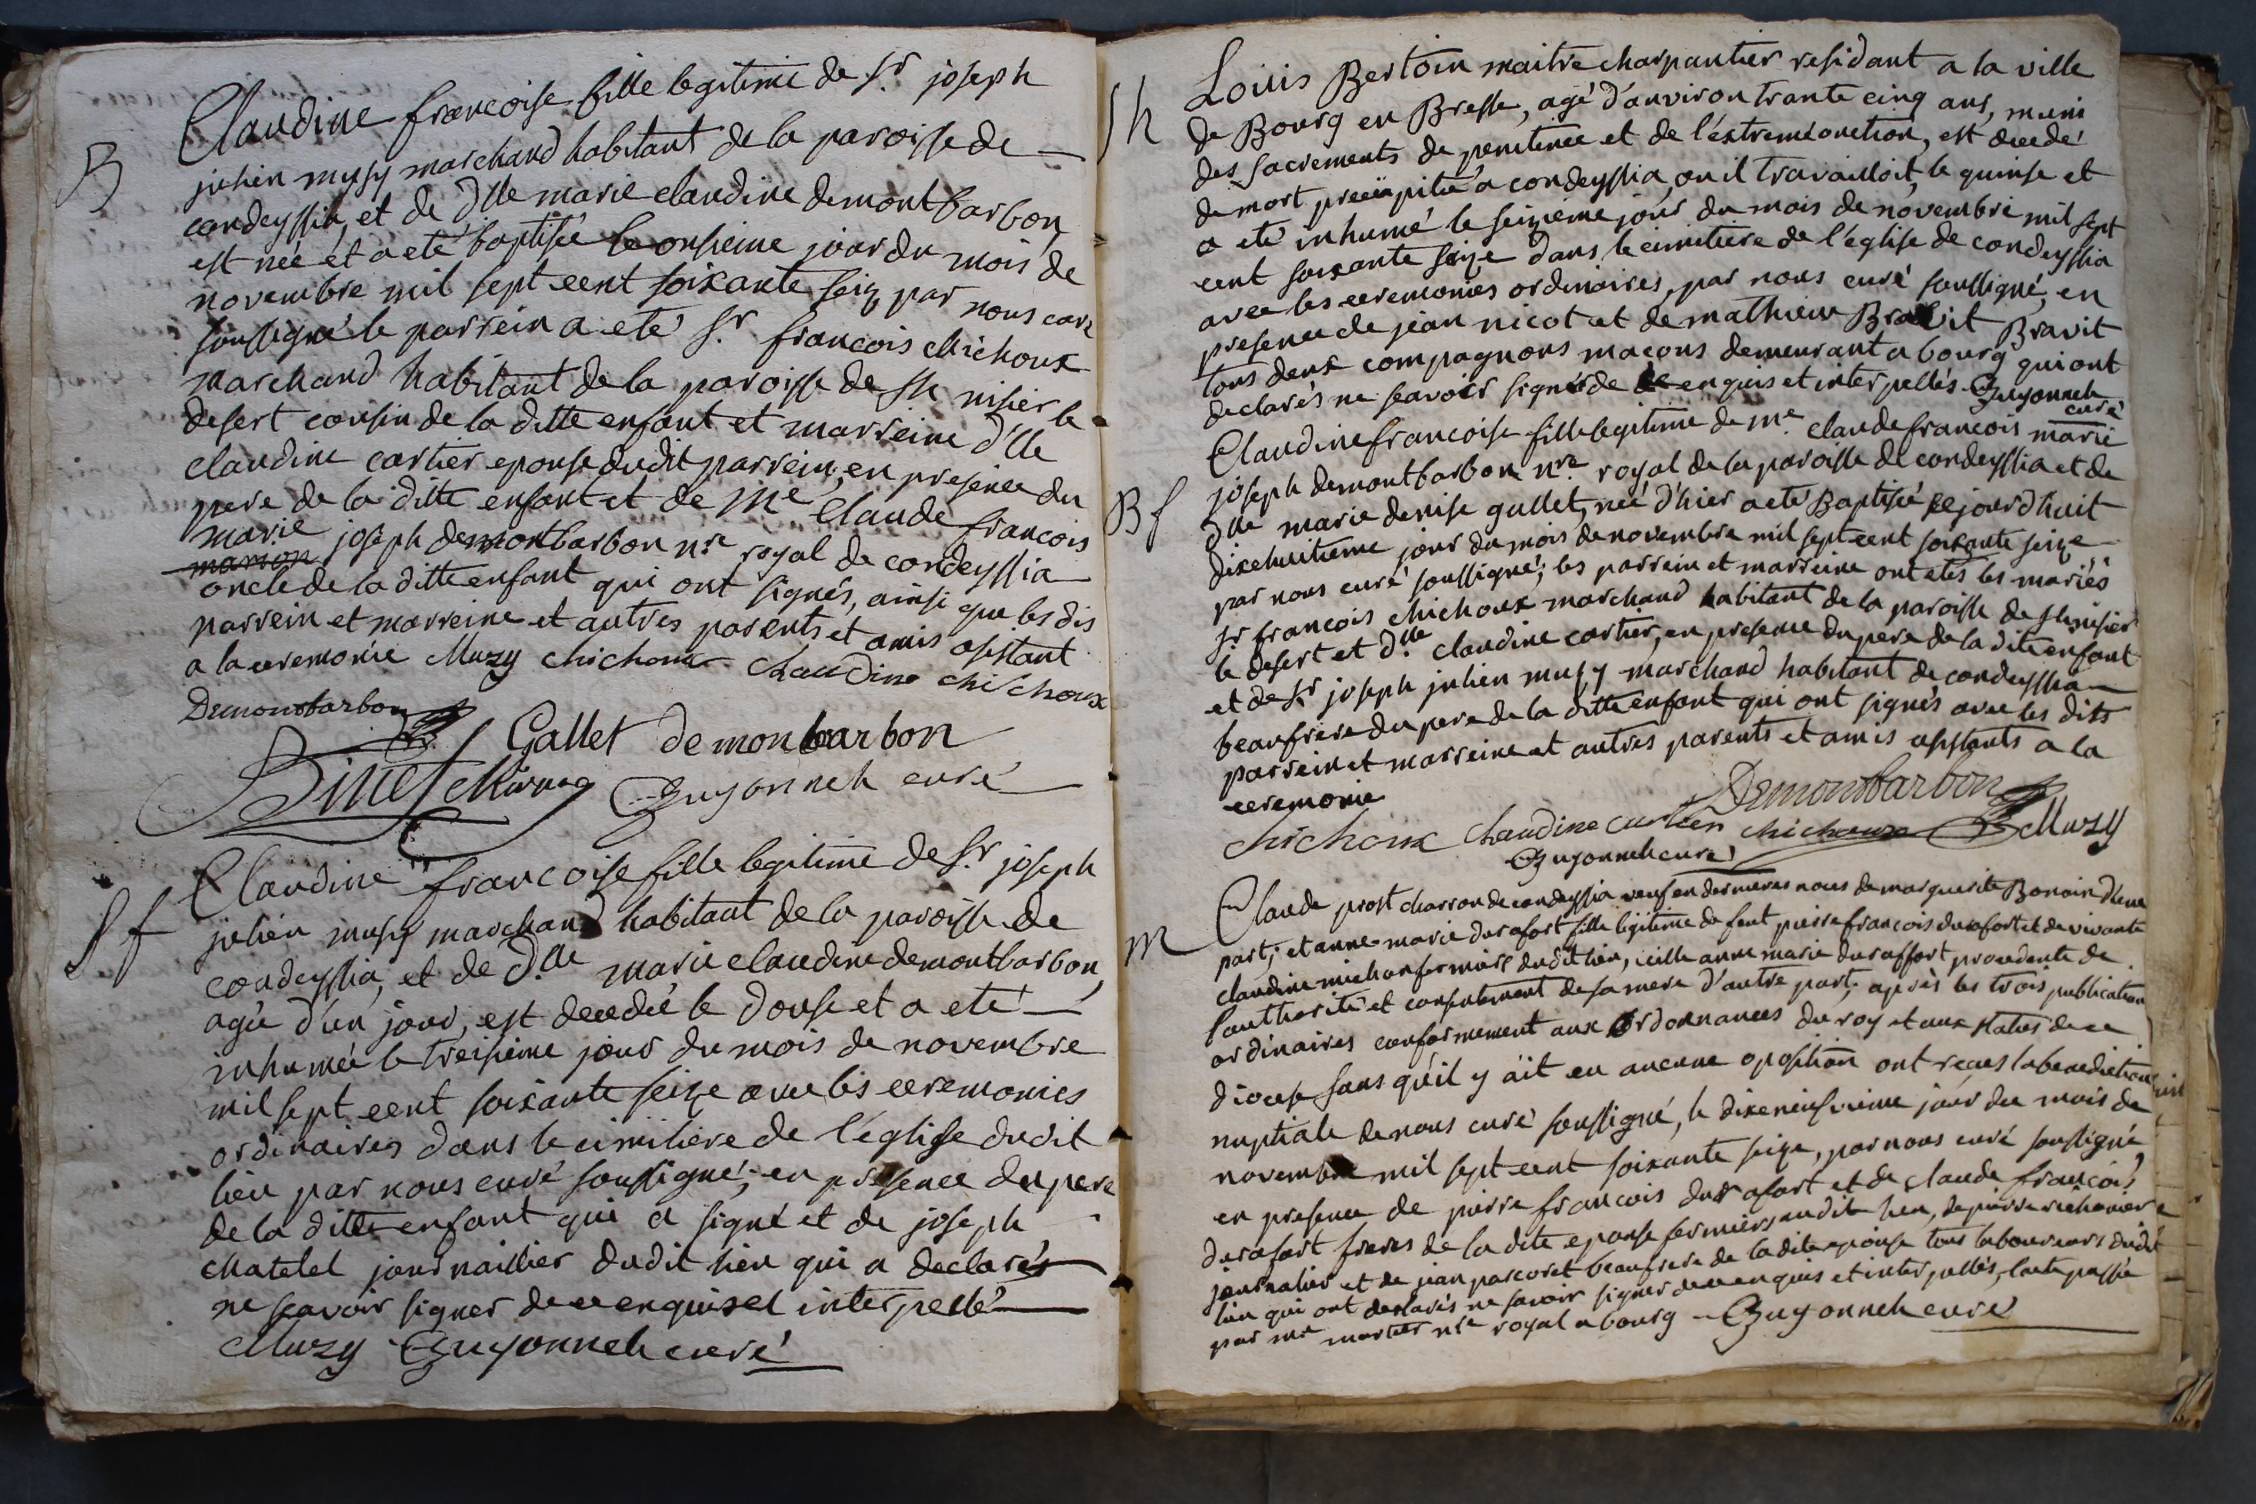 B
Claudine francoise fille legitime de Sr. joseph
julien musy marchand habitant de la paroisse de
condeyssia, et de dlle marie claudine demontbarbon,
est née et a eté baptisée le onsieme jour du mois de
novembre mil sept cent soixante seize par nous curé
soussigné le parrein a eté Sr. francois chichoux
marchand habitant de la paroisse de St nisier le
desert cousin de la ditte enfant et marreine d'lle
claudine cartier epouse dudit parrein, en presence du
pere de la ditte enfant et de Me Claude francois
marie joseph demontbarbon nre royal de condeyssia
oncle de la ditte enfant qui ont signés, ainsi que les dis
parrein et marreine et autres parents et amis assistant
a la ceremonie Muzy chichoux Claudine chichoux
Demontbarbon
Gallet demonbarbon
Guyonneh curé
Sf
Claudine francoise fille legitime de Sr. joseph
julien musy marchand habitant de la paroisse de
condeyssia, et de dlle marie claudine demontbarbon,
agée d'un jour, est decedée le douse et a eté
inhumée le treisieme jour du mois de novembre
mil sept cent soixante seize avec les ceremonies
ordinaires dans le cimitiere de l'eglise dudit
lieu par nous curé soussigné; en presence du pere
de la ditte enfant qui a signé et de joseph
chatelet journaillier dudit lieu qui a declarés
ne scavoir signer de ce enquis et interpellé
Muzy Guyonneh curé
Sh
Louis Bertoin maitre charpantier residant a la ville
de Bourg en Bresse, agé d'anviron trante cinq ans, muni
des sacrements de penitence et de l'extremeonction, est decedé
de mort precipitée a condeyssia, ou il travailloit, le quinse et
a eté inhumé le seizieme jour du mois de novembre mil sept
cent soixante seize dans le cimitiere de l'eglise de condeyssia
avec les ceremonies ordinaires, par nous curé soussigné, en
presence de jean nicot et de mathieu Bravit Bravit
tous deux compagnons macons demeurant a bourg qui ont
declarés ne scavoir signér de ce enquis et interpellés Guyonneh
curé
Bf
Claudine francoise fille legitime de me. claude francois marie
joseph demontbarbon nre. royal de la paroisse de condeyssia et de
dlle marie denise gallet, née d'hier a eté Baptisée cejourd'huit
dixehuitieme jour du mois de novembre mil sept cent soixante seize
par nous curé soussigné; les parrein et marreine ont etés les mariés
sr francois chichoux marchand habitant de la paroisse de St nisier
le desert et dlle claudine cartier, en presence du pere de la dite enfant
et de sr joseph julien musy marchand habitant de condeyssia
beaufrere du pere de la ditte enfant qui ont signés avec les dits
parrein et marreine et autres parents et amis assistants a la
ceremonie
Demontbarbon
chichoux Claudine cartier chichoux Muzy
Guyonneh curé
M
Claude prost charron de condeyssia veuf en dernieres noces de marguerite Bonoin d'une
part; et anne marie durafort fille legitime de feut pierre francois durafort et de vivante
claudine michon fermiere dudit lieu, icelle anne marie duraffort procedente de
l'authorité et consentement de sa mere d'autre part; après les trois publication
ordinaires conformement aux ordonnances du roy et aux status de ce
diocese sans qu'il y ait eu aucune oposition ont recus la benediction
nuptiale de nous curé soussigné, le dixeneufvieme jour du mois de
novembre mil sept cent soixante seize, par nous curé soussigné
en presence de pierre francois durafort et de claude francois
durafort freres de la dite epouse fermiers audit lieu, de pierre
journalier et de jean pascoret beaufrere de la dite epouse tous laboureurs dudit
lieu qui ont declarés ne savoir signer de ce enquis et interpellés, l'acte passée
par me nre royal a bourg Guyonneh curé